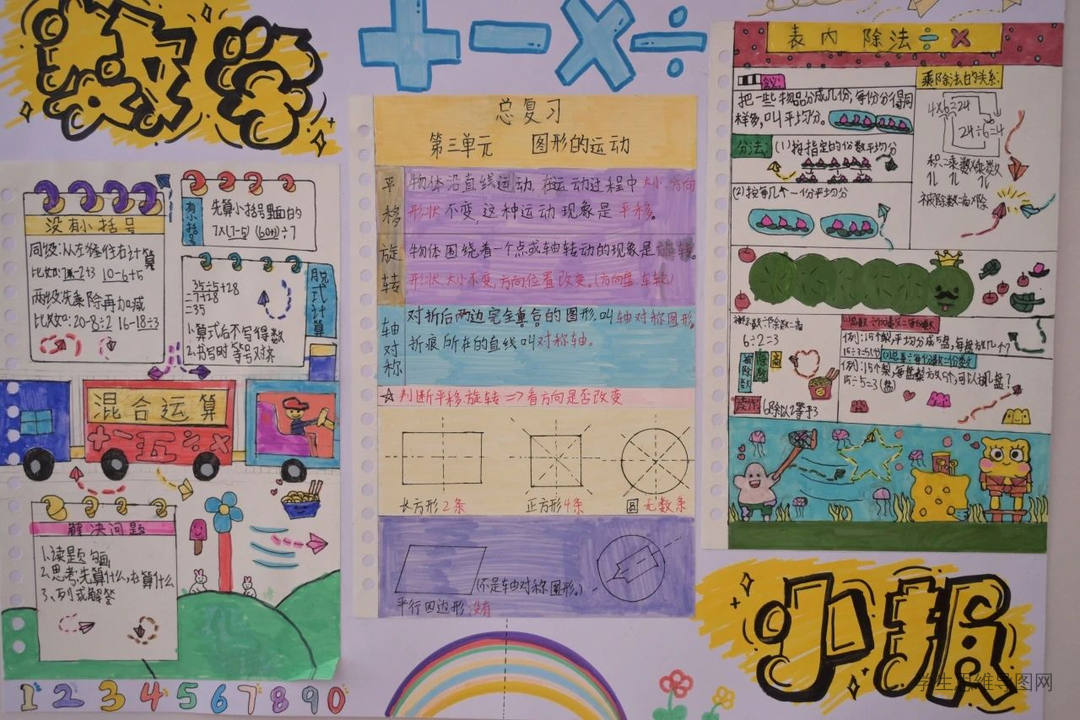 数学
+ − × ÷
没有小括号
同级:从左往右计算
比如: 10-6+5
两级:先乘除再加减
比如:20-8÷2 16-18÷3
有小括号
先算小括号里面的
7×(7-5) (60+3)÷7
脱式计算
35÷5+28
=7+28
=35
1.算式右不写得数
2.书写时等号对齐
混合运算
+ − ÷ ×
解决问题
1.读题
2.思考:先算什么,在算什么
3.列式解答
1 2 3 4 5 6 7 8 9 0
总复习
第三单元 图形的运动
平移
物体沿直线运动,在运动过程中大小 方向
形状不变,这种运动现象是平移。
旋转
物体围绕着一个点或轴转动的现象是旋转
形状 大小不变,方向位置改变。(方向盘 车轮)
轴对称
对折后两边完全重合的图形,叫轴对称图形,
折痕所在的直线叫对称轴。
☆判断平移旋转=>看方向是否改变
长方形2条
正方形4条
圆 无数条
(不是轴对称图形。)
平行四边形:没有
表内 除法÷×
把一些物品分成几份,每份分得同
样多,叫平均分。
分法:
(1)按指定的份数平均分
(2)按每几个一份平均分
乘除法的关系:
4×6=24
24÷6=4
积÷乘数=乘数
被除数÷除
6÷2=3
被除数
除号
商
读作:6除以2等于3
例:15个梨,平均分成5盘,每盘放几个?
15÷5=3(个)
例:15个梨,每盘放5个,可以放几盘?
15÷5=3(盘)
小报
学生思维导图网